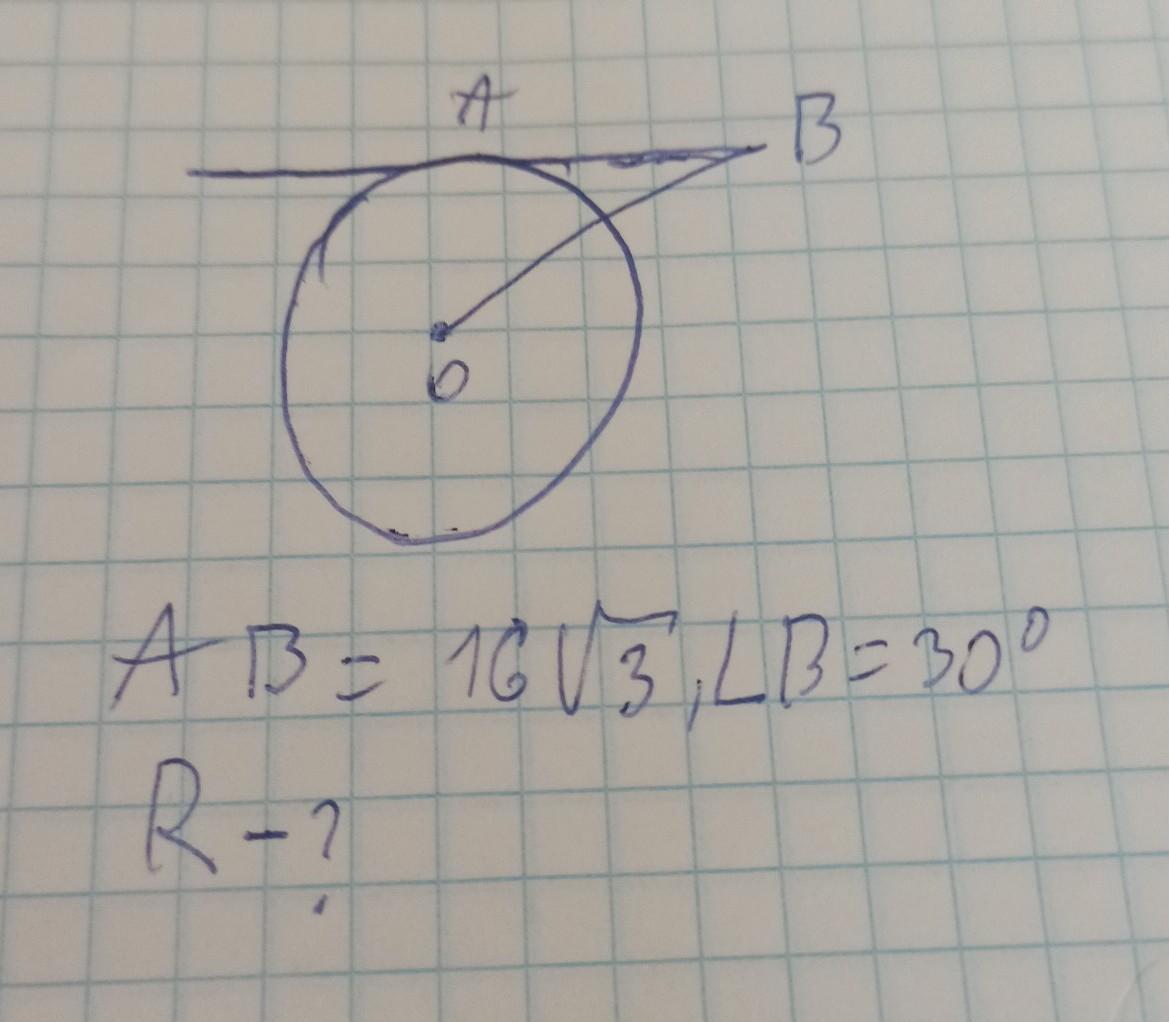 A
B
O
AB = 16√3, ∠B = 30°
R - ?